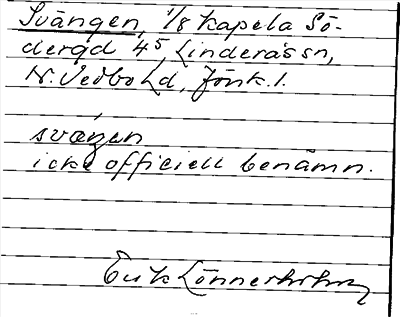 Svängen, 1/8 Kapela Sö-
dergd 4⁵, Linderås sn,
N. Vedbo hd, Jönk. l.
svæŋen
icke officiell benämn.
Erik Lönnerholm